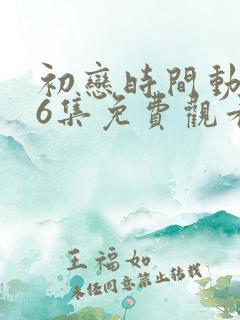 初戀時間動
6集免費觀看
王福如
未任同意禁止转载